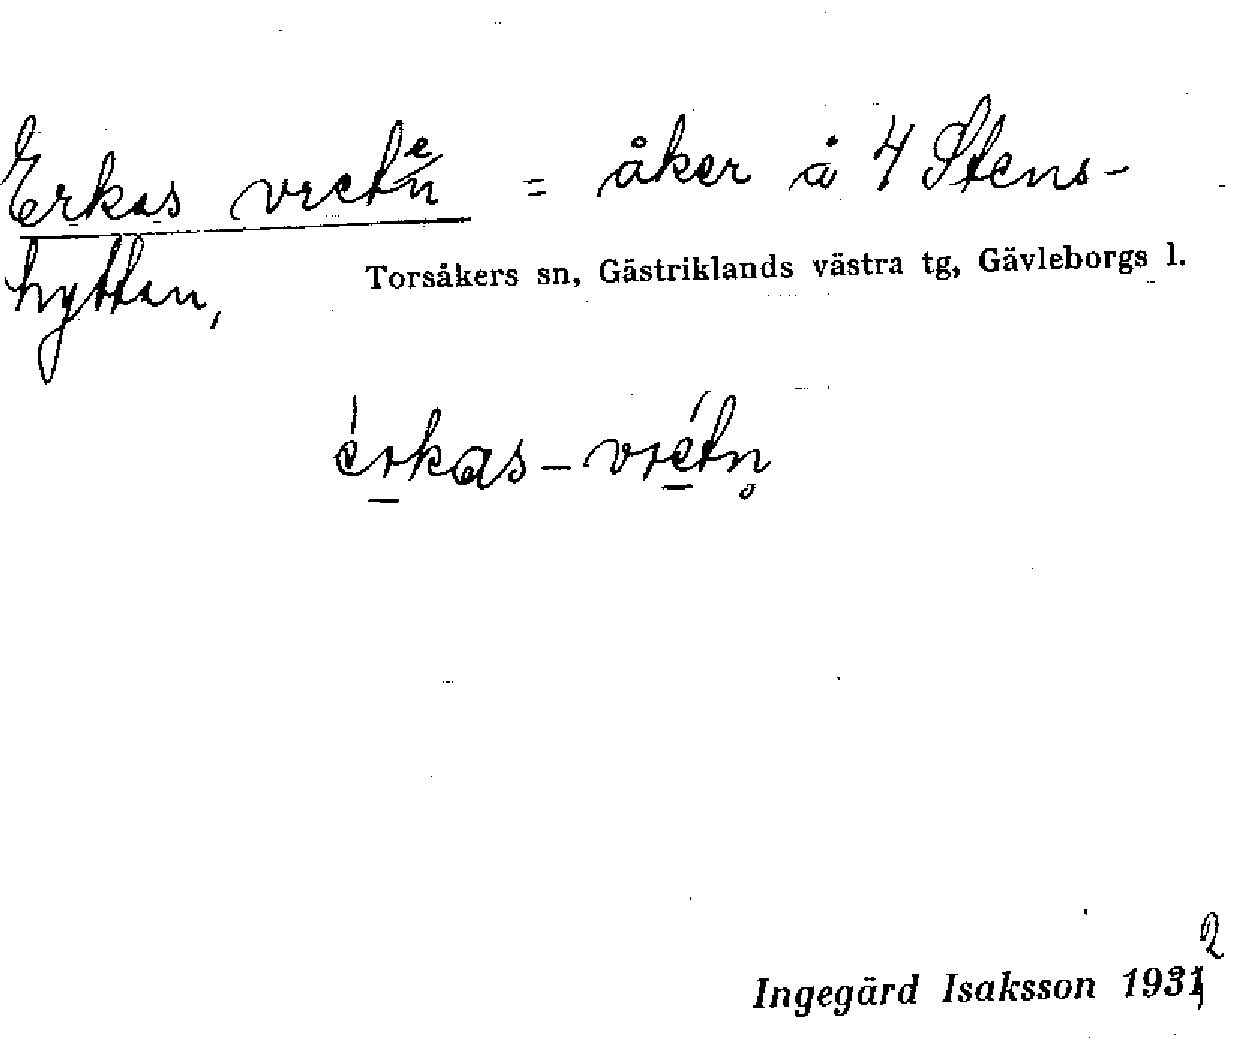 Erkas vreten = åker å 4 Stens-
hyttan,
Torsåkers sn, Gästriklands västra tg, Gävleborgs l.
érkas-vrétn̥
Ingegärd Isaksson 1932